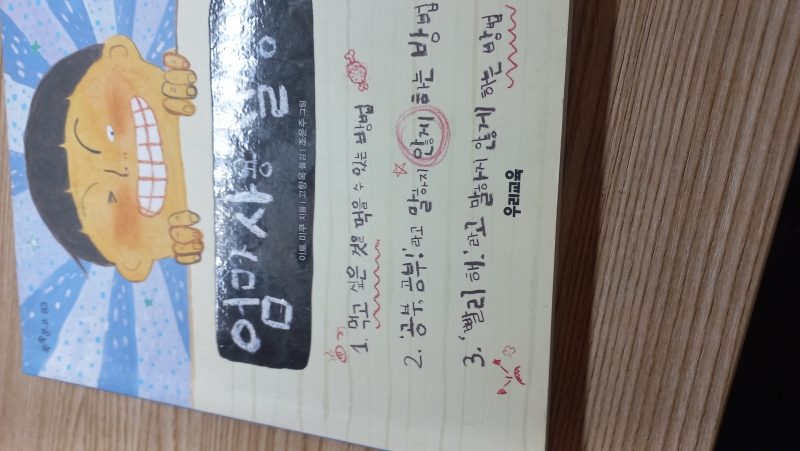 엄마 사용 설명
이토 미쿠 지음 | 고향옥 옮김 | 조윤주 그림
1. 먹고 싶은 것을 먹을 수 있는 방법
2. '공부, 공부!'라고 말하지 않게 하는 방법
3. '빨리 해.'라고 말하지 않게 하는 방법
우리교육